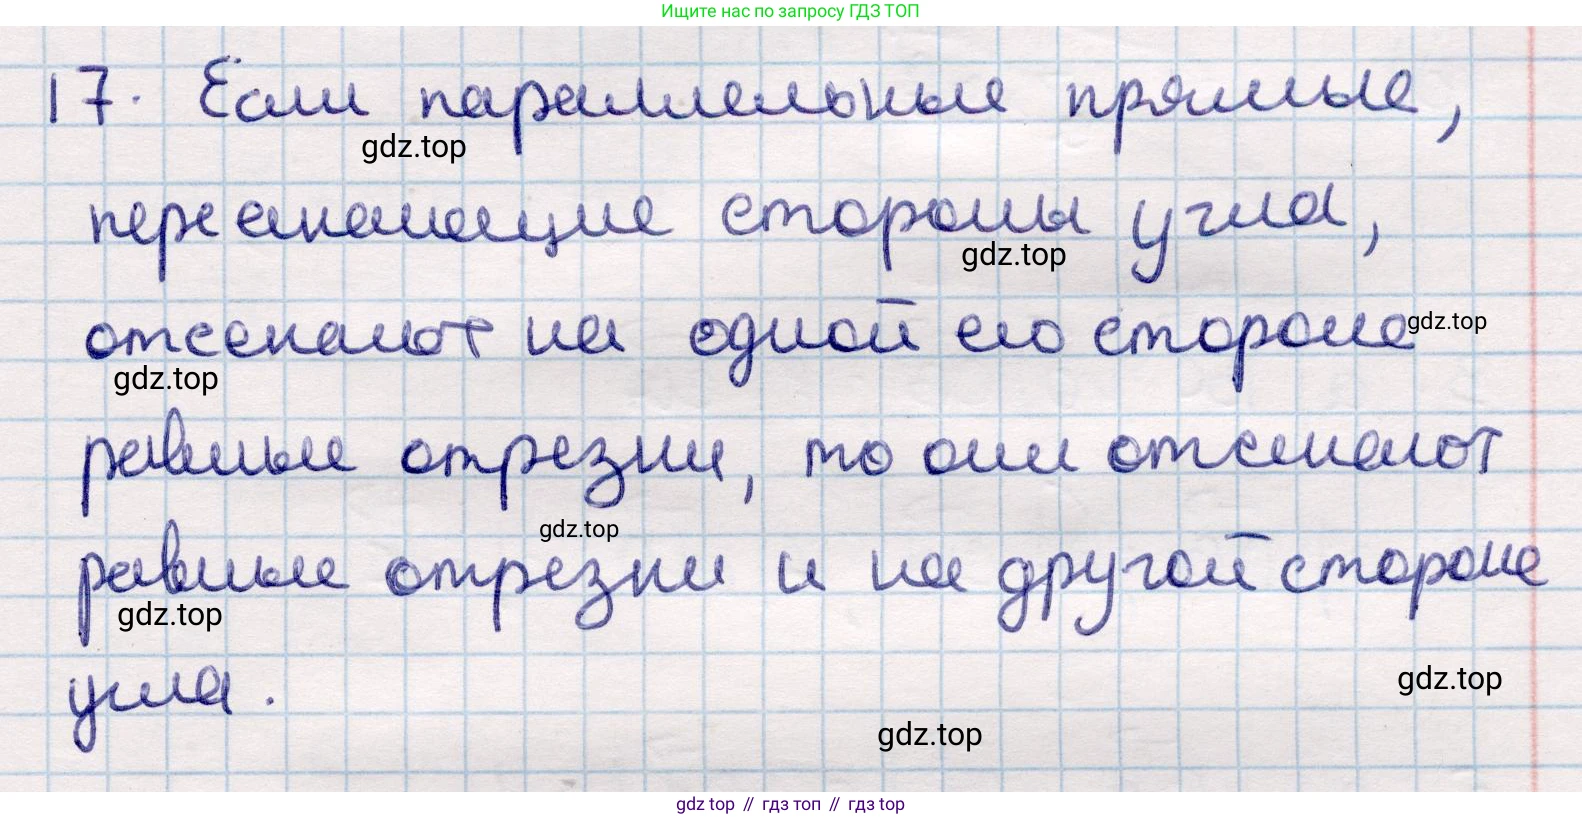 Ищите нас по запросу ГДЗ ТОП
17. Если параллельные прямые,
gdz.top
пересекающие стороны угла,
gdz.top
отсекают на одной его стороне
gdz.top
gdz.top
равные отрезки, то они отсекают
gdz.top
равные отрезки и на другой стороне
gdz.top
угла.
gdz.top
gdz.top
gdz top // гдз топ // гдз top